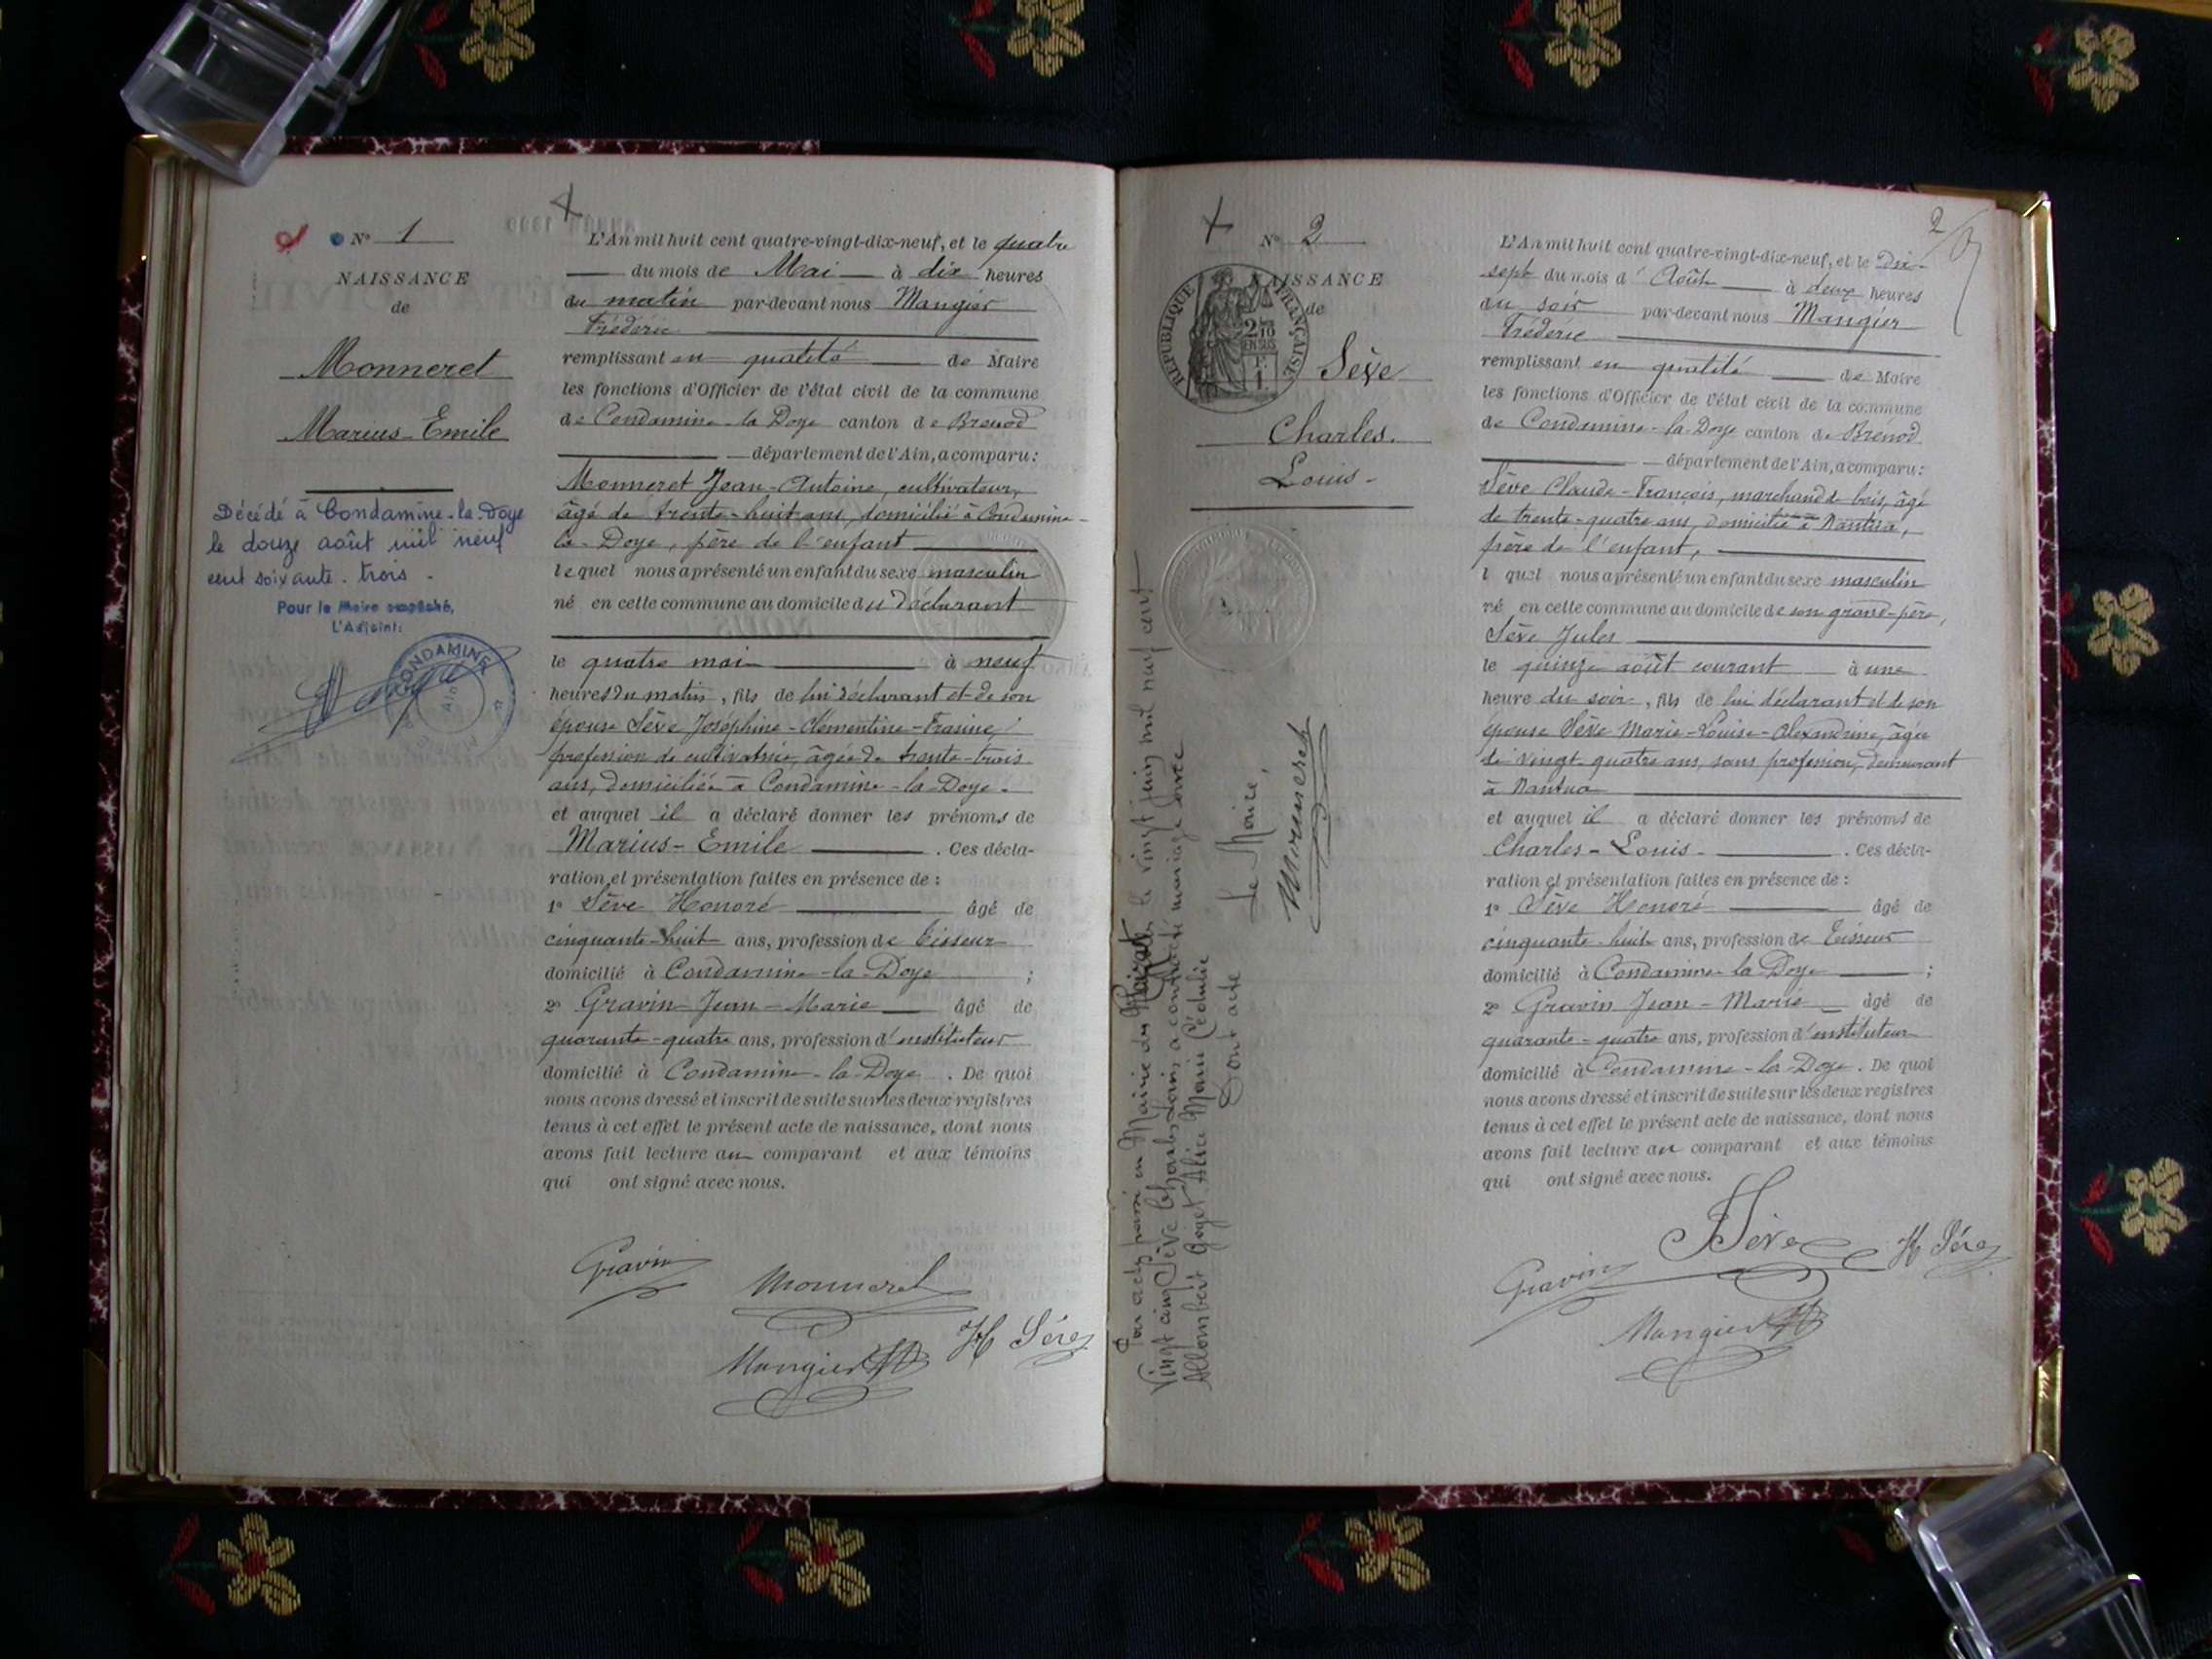 Nº 1
NAISSANCE
de
Monneret
Marius-Emile
Décédé à Condamine-la-Doye
le douze août mil neuf
cent soixante-trois.
Pour le Maire empêché,
L'Adjoint:
CONDAMINE
L'An mil huit cent quatre-vingt-dix-neuf, et le quatre
du mois de Mai à dix heures
du matin par-devant nous Mangier
Fréderic
remplissant en qualité de Maire
les fonctions d'Officier de l'état civil de la commune
de Condamine-la-Doye canton de Brenod
département de l'Ain, a comparu:
Monneret Jean-Antoine, cultivateur,
âgé de trente-huit ans, domicilié à Condamine-
la-Doye, père de l'enfant
lequel nous a présenté un enfant du sexe masculin
né en cette commune au domicile du déclarant
le quatre mai à neuf
heures du matin, fils de lui déclarant et de son
épouse Sève Joséphine-Clémentine-Francine,
profession de cultivatrice, âgée de trente-trois
ans, domiciliée à Condamine-la-Doye.
et auquel il a déclaré donner les prénoms de
Marius-Emile. Ces décla-
ration et présentation faites en présence de :
1º Sève Honoré âgé de
cinquante-huit ans, profession de tisseur
domicilié à Condamine-la-Doye ;
2º Gravin Jean-Marie âgé de
quarante-quatre ans, profession d'instituteur
domicilié à Condamine-la-Doye. De quoi
nous avons dressé et inscrit de suite sur les deux registres
tenus à cet effet le présent acte de naissance, dont nous
avons fait lecture au comparant et aux témoins
qui ont signé avec nous.
Gravin
Monneret
H Sève
Mangier
2
Nº 2
NAISSANCE
de
RÉPUBLIQUE FRANÇAISE
2/10 EN SUS
Sève
Charles.
Louis-
Par acte passé en Mairie de le vingt juin mil neuf cent
vingt cinq Sève Charles Louis a contracté mariage avec
Allombert Goget Alice Marie
Dont acte
Le Maire,
Monneret
L'An mil huit cent quatre-vingt-dix-neuf, et le dix-
sept du mois d'Août à deux heures
du soir par-devant nous Mangier
Fréderic
remplissant en qualité de Maire
les fonctions d'Officier de l'état civil de la commune
de Condamine-la-Doye canton de Brénod
département de l'Ain, a comparu:
Sève Claude-François, marchand de bois, âgé
de trente-quatre ans, domicilié à Nantua,
père de l'enfant,
l quel nous a présenté un enfant du sexe masculin
né en cette commune au domicile de son grand-père,
Sève Jules
le quinze août courant à une
heure du soir, fils de lui déclarant et de son
épouse Sève Marie-Louise-Alexandrine, âgée
de vingt-quatre ans, sans profession, demeurant
à Nantua
et auquel il a déclaré donner les prénoms de
Charles-Louis-. Ces décla-
ration et présentation faites en présence de :
1º Sève Honoré âgé de
cinquante-huit ans, profession de tisseur
domicilié à Condamine-la-Doye ;
2º Gravin Jean-Marie âgé de
quarante-quatre ans, profession d'instituteur
domicilié à Condamine-la-Doye. De quoi
nous avons dressé et inscrit de suite sur les deux registres
tenus à cet effet le présent acte de naissance, dont nous
avons fait lecture au comparant et aux témoins
qui ont signé avec nous.
Sève
H Sève
Gravin
Mangier